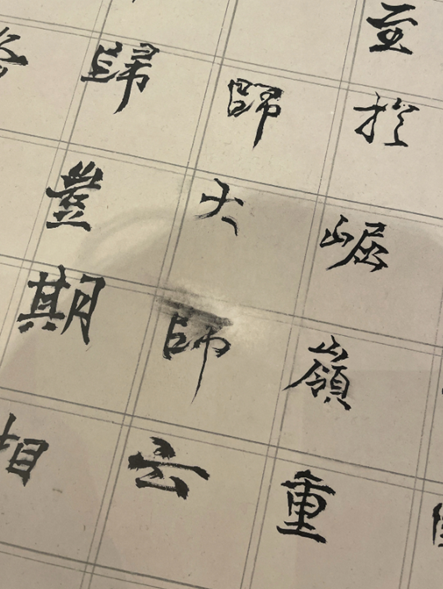 至於崛嶺重
大師云
歸豈期相